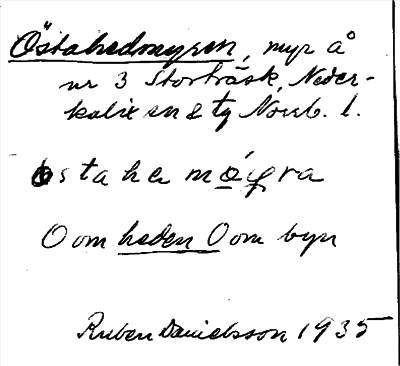 Östahedmyren, myr å
nr 3 Storträsk, Neder-
kalix sn & tg Norrb. l.
östahe myra
O om heden O om byn
Ruben Danielsson 1935